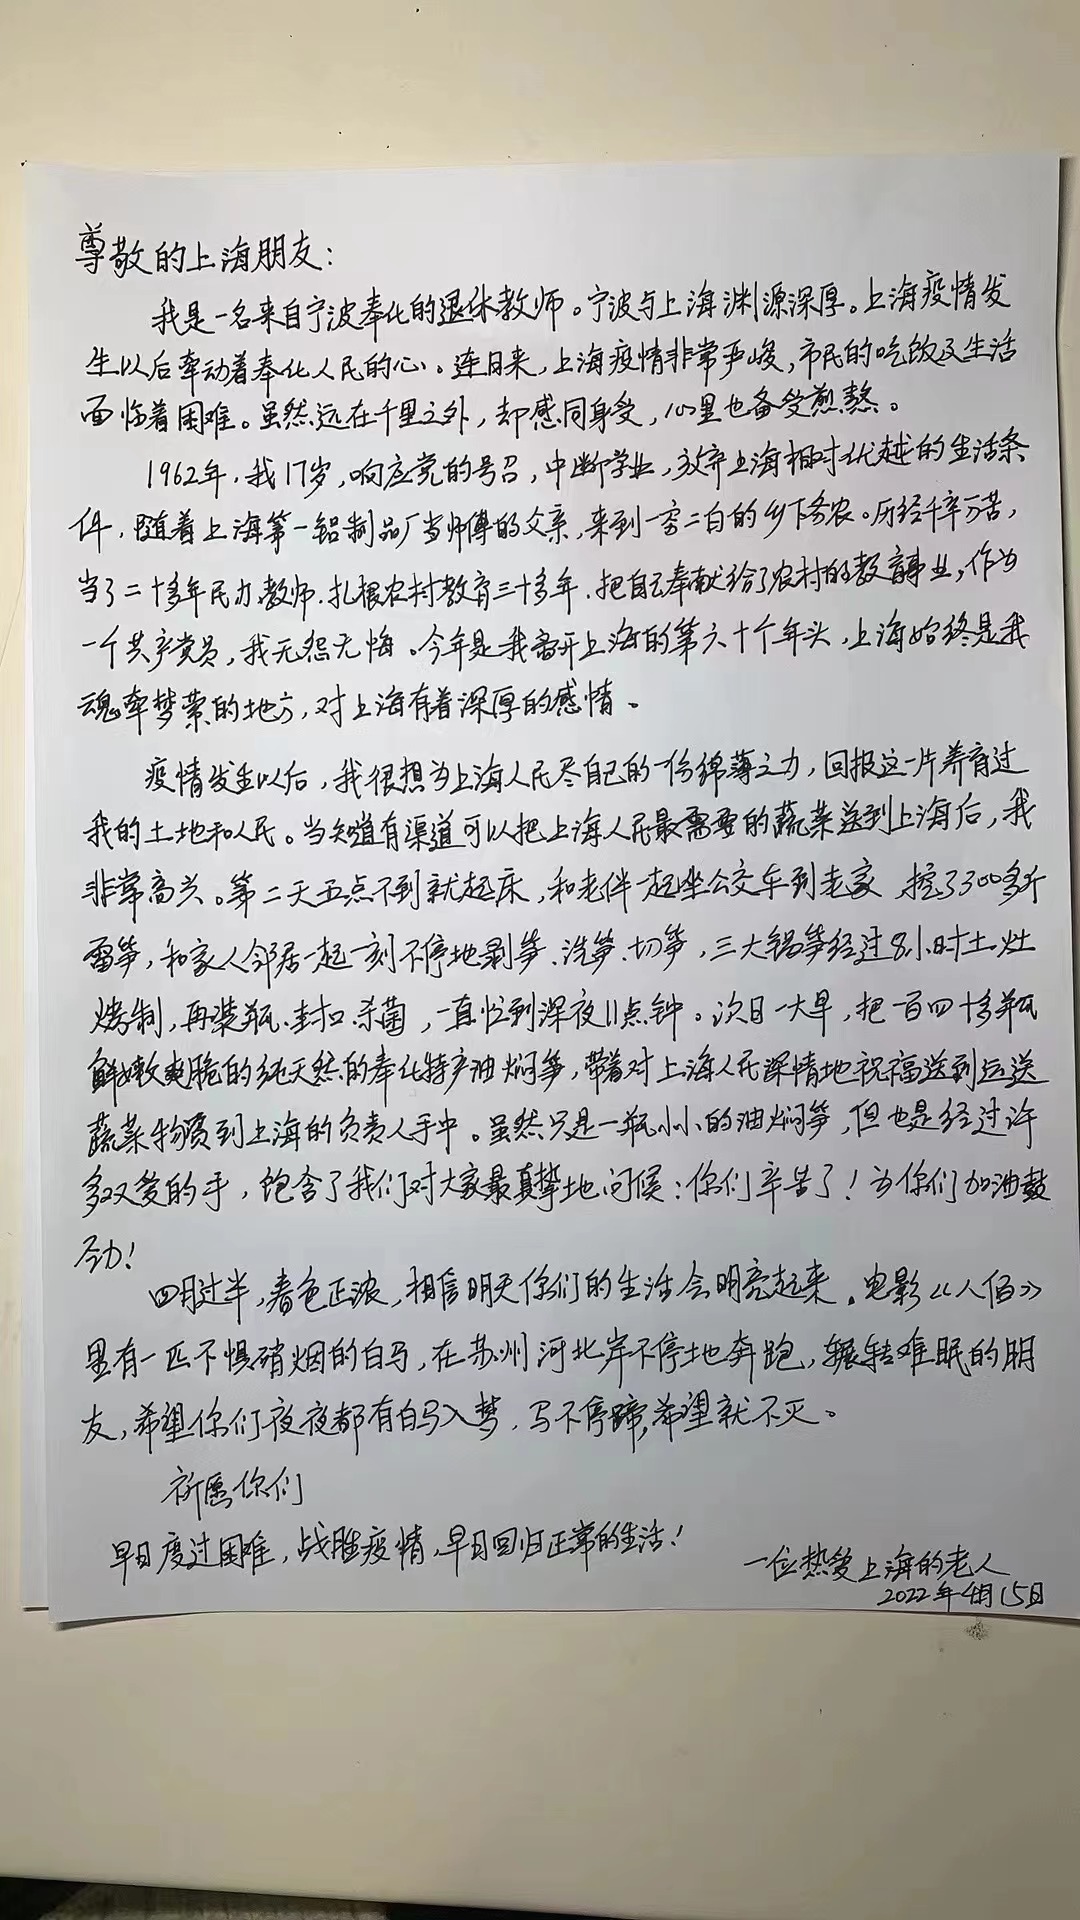 尊敬的上海朋友：
我是一名来自宁波奉化的退休教师。宁波与上海渊源深厚。上海疫情发
生以后牵动着奉化人民的心。连日来，上海疫情非常严峻，市民的吃饭及生活
面临着困难。虽然远在千里之外，却感同身受，心里也备受煎熬。
1962年，我17岁，响应党的号召，中断学业，放弃上海相对优越的生活条
件，随着上海第一铝制品厂当师傅的父亲，来到一穷二白的乡下务农。历经千辛万苦，
当了二十多年民办教师．扎根农村教育三十多年．把自己奉献给了农村的教育事业，作为
一个共产党员，我无怨无悔。今年是我离开上海的第六十个年头，上海始终是我
魂牵梦萦的地方，对上海有着深厚的感情。
疫情发生以后，我很想为上海人民尽自己的一份绵薄之力，回报这一片养育过
我的土地和人民。当知道有渠道可以把上海人民最需要的蔬菜送到上海后，我
非常高兴。第二天五点不到就起床，和老伴一起坐公交车到老家 挖了300多斤
雷笋，和家人邻居一起一刻不停地剥笋、洗笋、切笋，三大锅笋经过8小时土灶
烤制，再装瓶、封口、杀菌，一直忙到深夜11点钟。次日一大早，把一百四十多瓶
鲜嫩爽脆的纯天然的奉化特产油焖笋，带着对上海人民深情地祝福送到运送
蔬菜物资到上海的负责人手中。虽然只是一瓶小小的油焖笋，但也是经过许
多双爱的手，饱含了我们对大家最真挚地问候：你们辛苦了！为你们加油鼓
劲！
四月过半，春色正浓，相信明天你们的生活会明亮起来。电影《八佰》
里有一匹不惧硝烟的白马，在苏州河北岸不停地奔跑，辗转难眠的朋
友，希望你们夜夜都有白马入梦，马不停蹄，希望就不灭。
祈愿你们
早日度过困难，战胜疫情，早日回归正常的生活！
一位热爱上海的老人
2022年4月15日